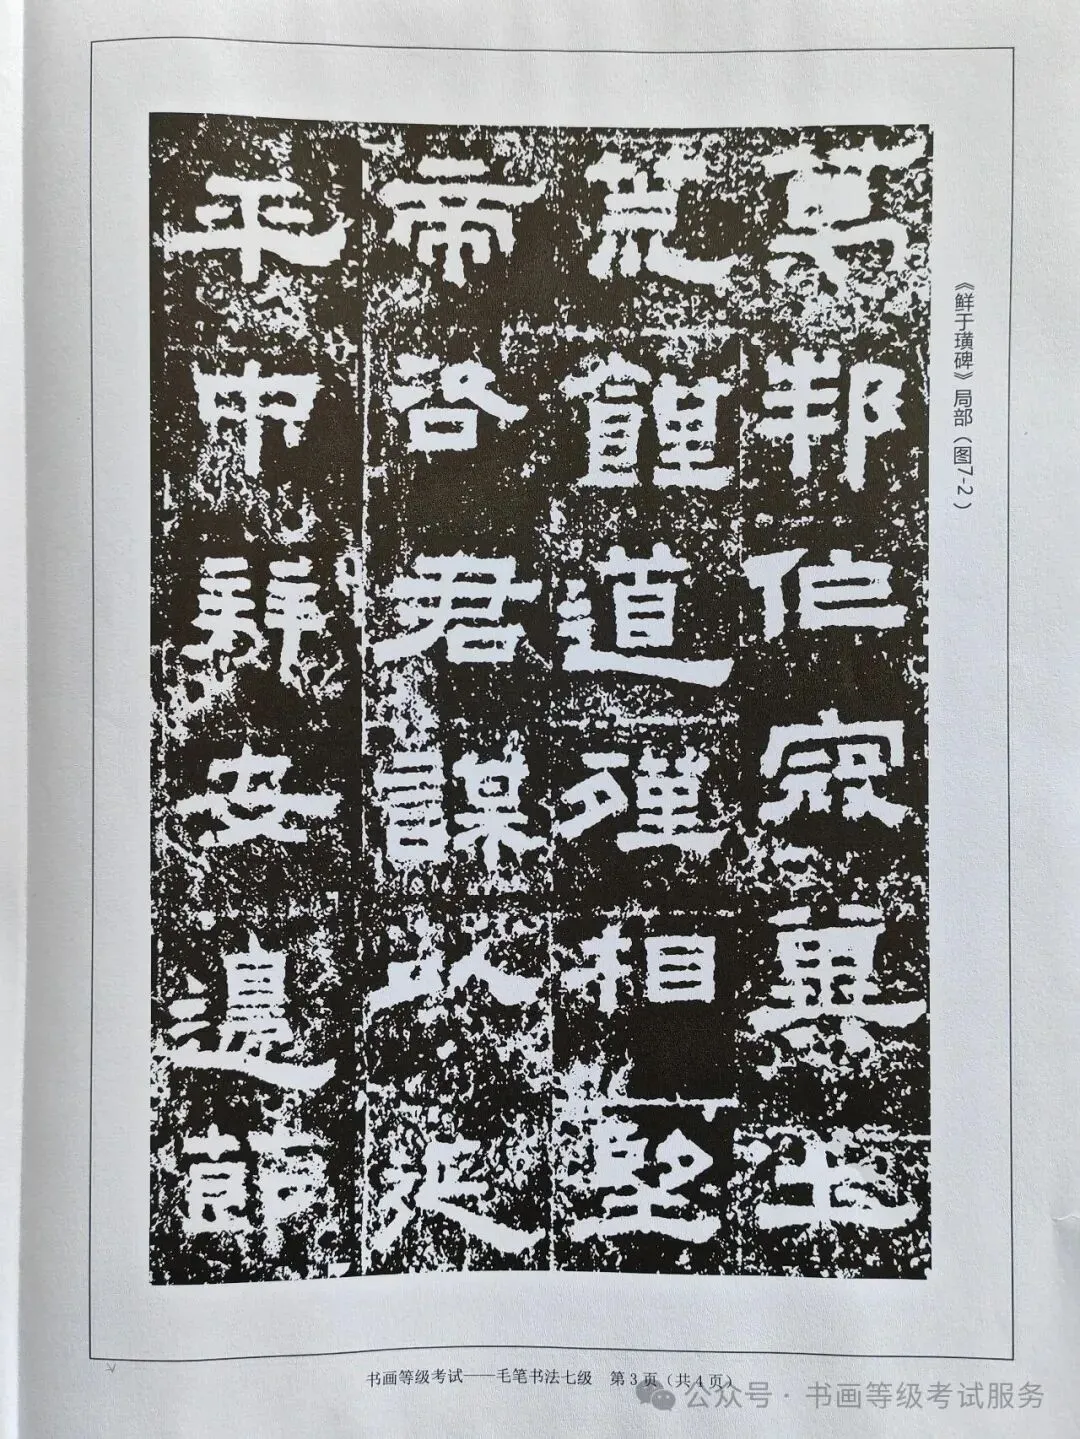 邦作寇畺土
荒饉道殣相望
帝咨君謀以延
平中拜安邊節
《鲜于璜碑》局部（图7-2）
书画等级考试——毛笔书法七级 第3页（共4页）
公众号·书画等级考试服务